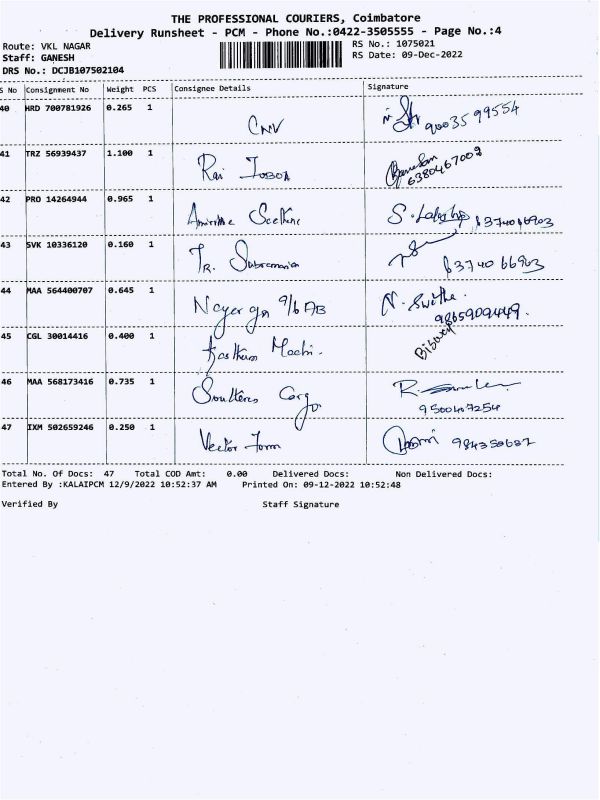 THE PROFESSIONAL COURIERS, Coimbatore
Delivery Runsheet - PCM - Phone No.:0422-3505555 - Page No.:4
Route: VKL NAGAR
RS No.: 1075021
Staff: GANESH
RS Date: 09-Dec-2022
DRS No.: DCJB107502104
S No Consignment No Weight PCS Consignee Details Signature
40 HRD 700781926 0.265 1
CNV 9003599554
41 TRZ 56939437 1.100 1
Rai 6380467002
42 PRO 14264944 0.965 1
S.
43 SVK 10336120 0.160 1
TR. Subramanian 6374066963
44 MAA 564400707 0.645 1
N. Swetha.
9865909449.
45 CGL 30014416 0.400 1
46 MAA 568173416 0.735 1
Southern Cargo R.
9500407254
47 IXM 502659246 0.250 1
Vector Form
Total No. Of Docs: 47 Total COD Amt: 0.00 Delivered Docs: Non Delivered Docs:
Entered By :KALAIPCM 12/9/2022 10:52:37 AM Printed On: 09-12-2022 10:52:48
Verified By Staff Signature